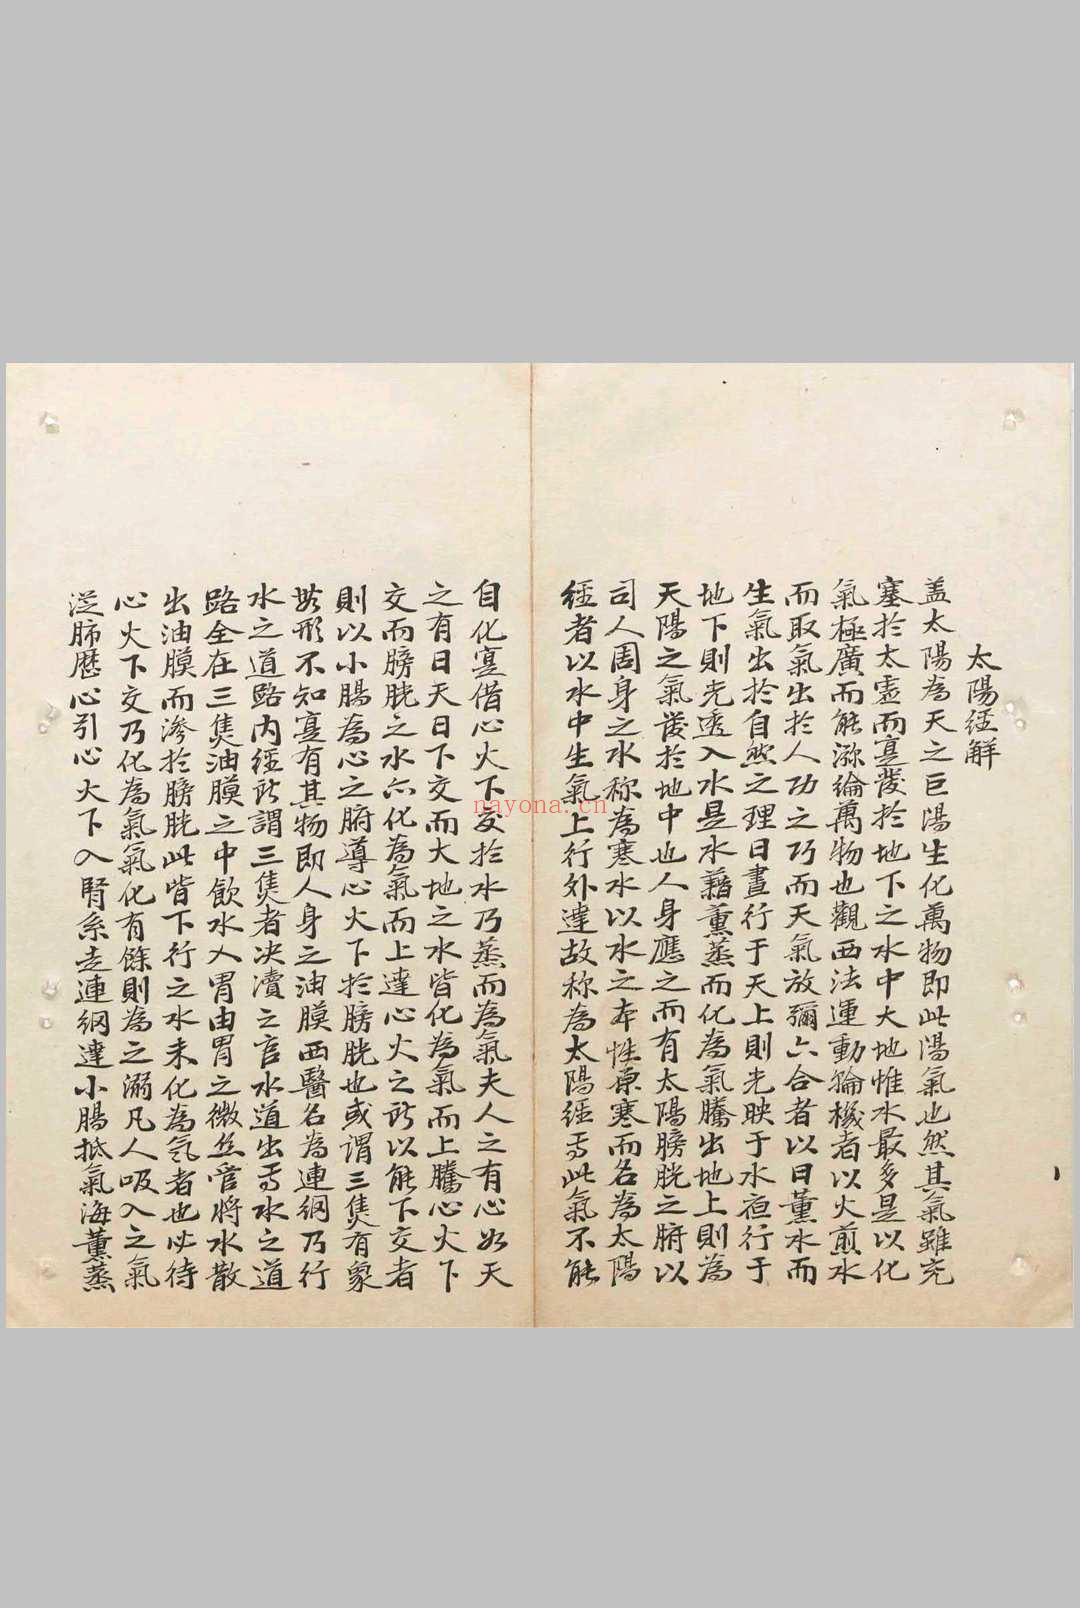 太陽經解
盖太陽為天之巨陽生化萬物即此陽氣也然其氣雖充
塞於太虛而寔發於地下之水中大地惟水最多是以化
氣極廣而能瀰綸萬物也觀西法運動輪機者以火煎水
而取氣出於人功之巧而天氣放彌六合者以日薰水而
生氣出於自然之理日晝行于天上則光映于水夜行于
地下則光透入水是水藉薰蒸而化為氣騰出地上則為
天陽之氣發於地中也人身應之而有太陽膀胱之腑以
司人周身之水称為寒水以水之本性原寒而名為太陽
經者以水中生氣上行外達故称為太陽經焉此氣不能
自化寔借心火下交於水乃蒸而為氣夫人之有心如天
之有日天日下交而大地之水皆化為氣而上騰心火下
交而膀胱之水亦化為氣而上達心火之所以能下交者
則以小腸為心之腑導心火下於膀胱也或謂三焦有象
無形不知寔有其物即人身之油膜西醫名為連網乃行
水之道路内經所謂三焦者决瀆之官水道出焉水之道
路全在三焦油膜之中飲水入胃由胃之微丝管將水散
出油膜而滲於膀胱此皆下行之水未化為氣者也必待
心火下交乃化為氣氣化有餘則為之溺凡人吸入之氣
從肺歷心引心火下入腎系走連網達小腸抵氣海薰蒸
nayona.cn